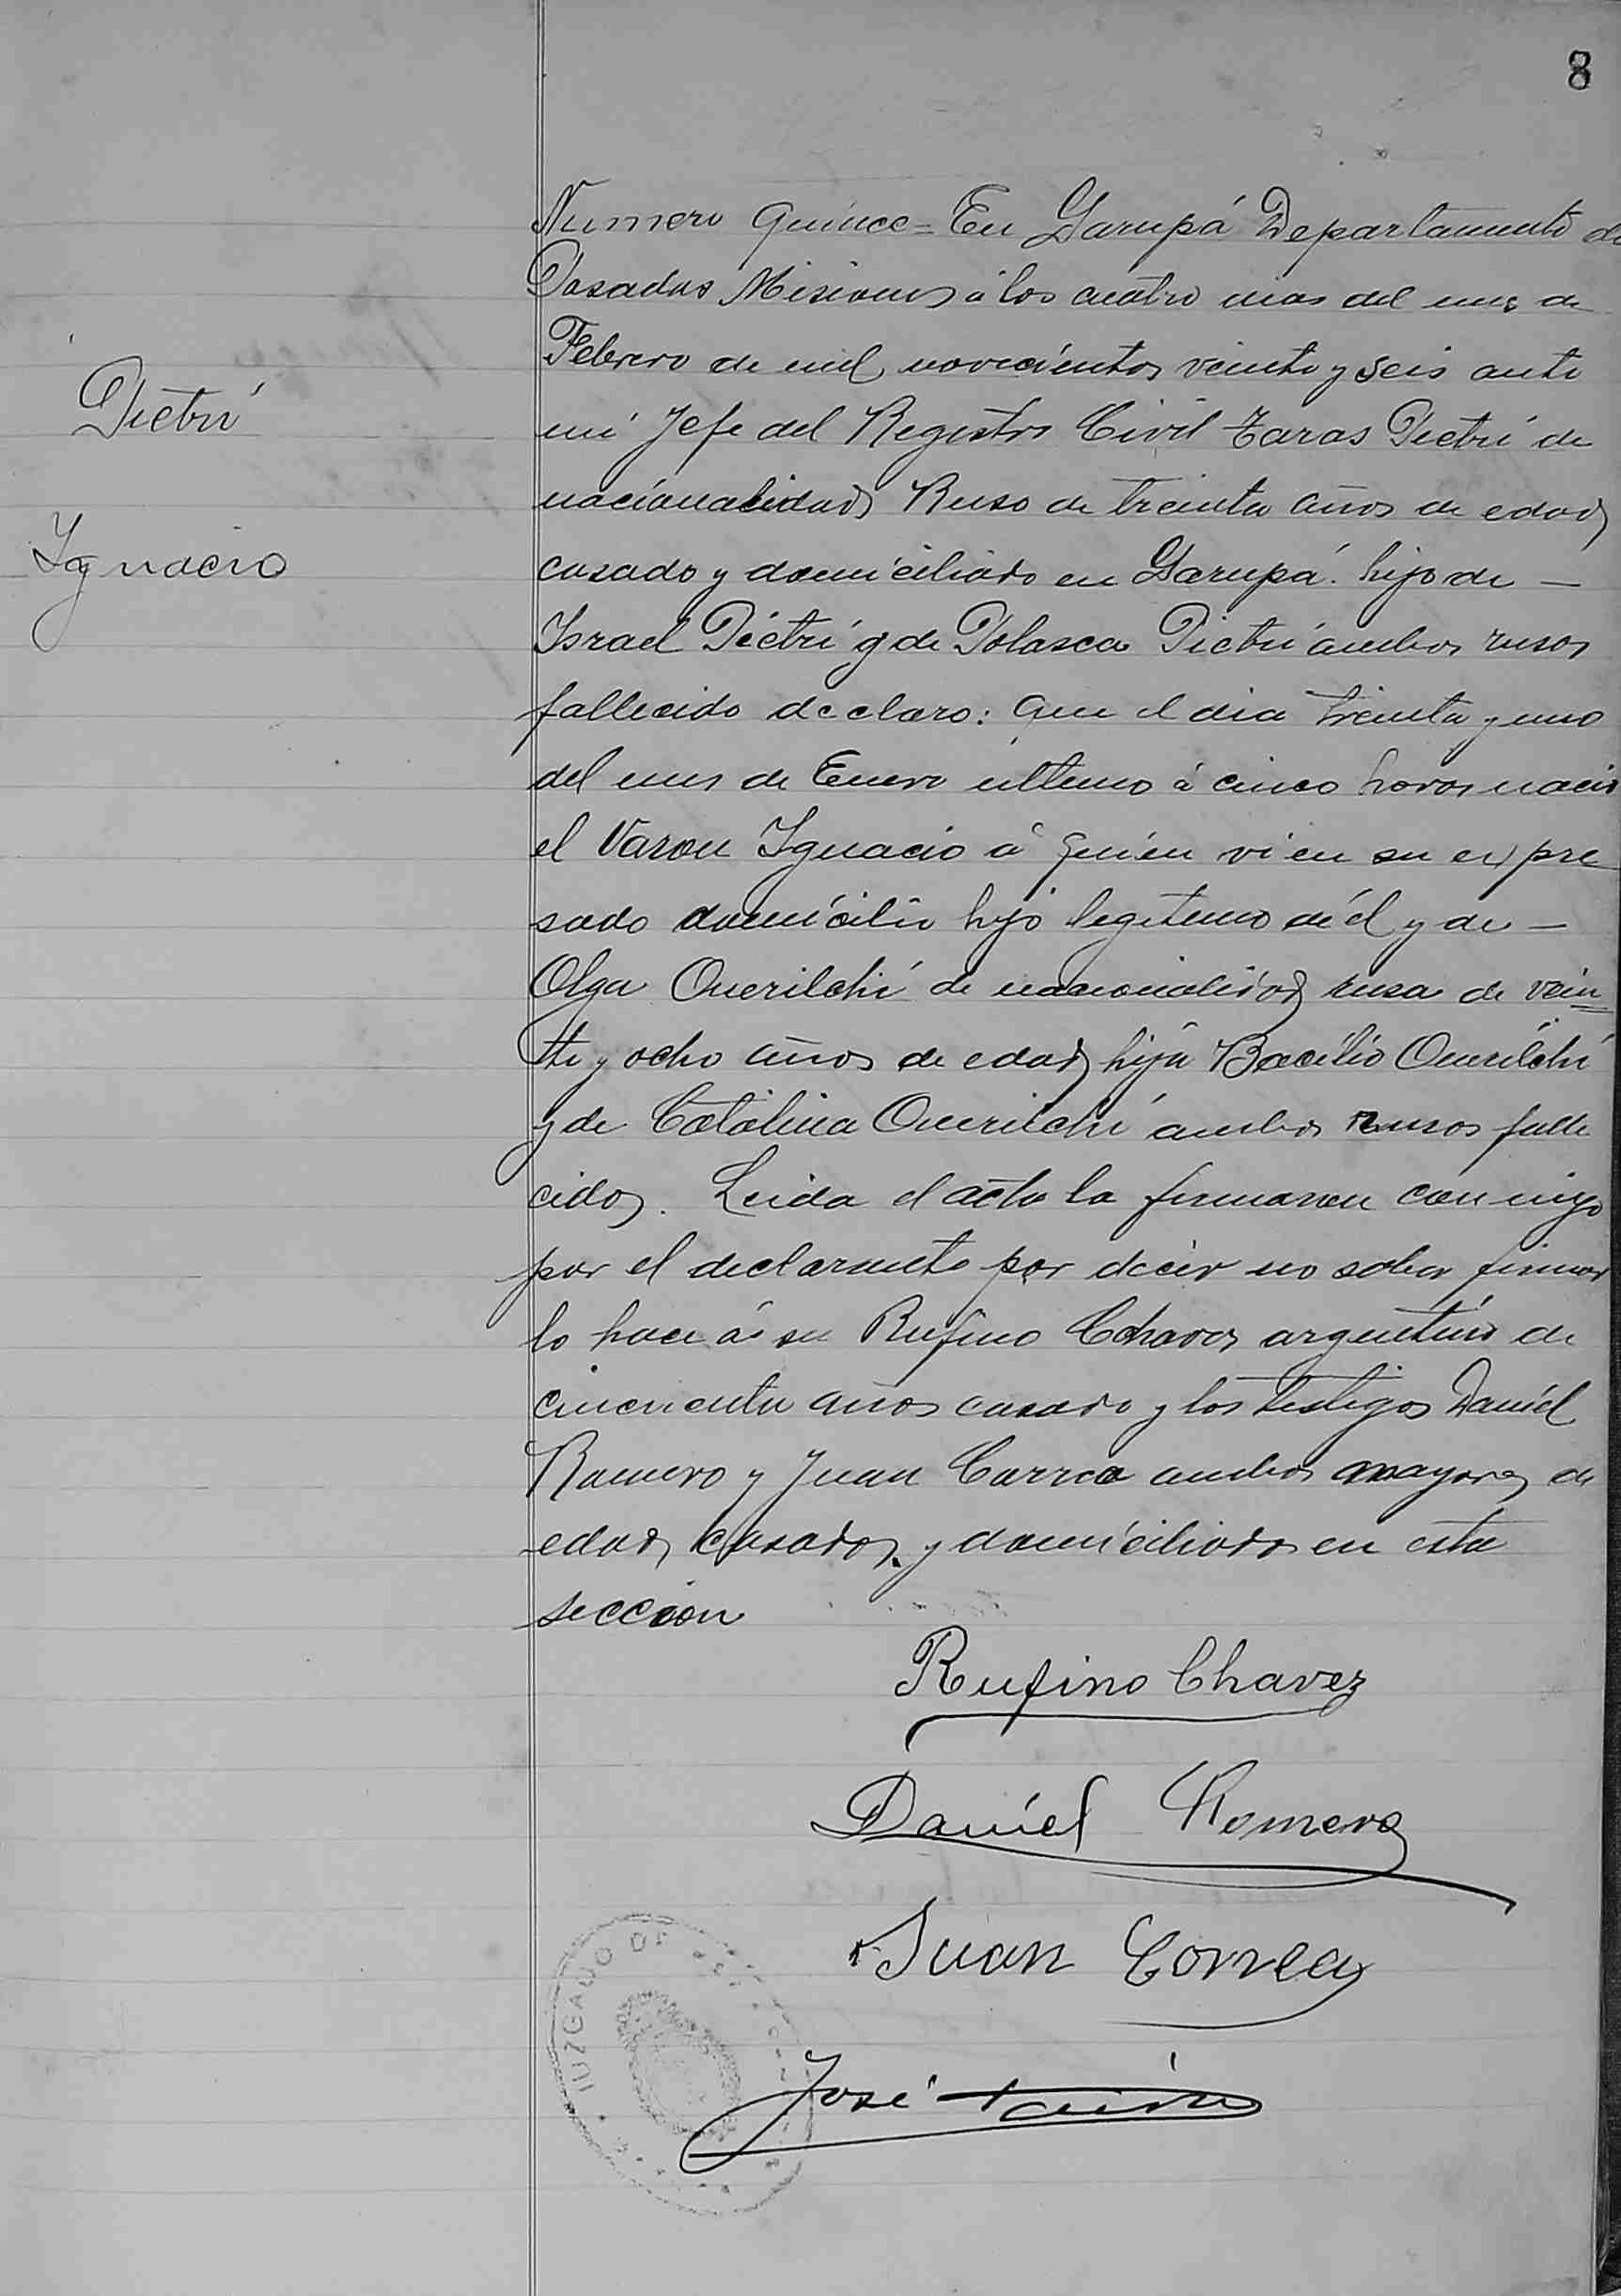 8
Numero quince = En Garupá Departamento de
Posadas Misiones á los cuatro dias del mes de
Febrero de mil novecientos veinte y seis ante
Pietri
mi Jefe del Registro Civil Taras Pietri de
nacionalidad Ruso de treinta años de edad
Ignacio
casado y domiciliado en Garupá. hijo de —
Israel Piétri y de Polasca Pietri ambos rusos
fallecido declaro: Que el dia treinta y uno
del mes de Enero ultimo á cinco horas nació
el Varon Ignacio á quien vi en su expre
sado domicilio hijo legitimo de él y de —
Olga Querilchi de nacionalidad rusa de vein
te y ocho años de edad hija Bacilio Querilchi
y de Catalina Querilchi ambos rusos falle
cidos. Leida el acta la firmaron conmigo
por el declarante por decir no saber firmar
lo hace á su Rufino Chaves argentino de
cincuenta años casado y los testigos Daniel
Romero y Juan Correa ambos mayores de
edad casados y domiciliados en esta
sección
Rufino Chavez
Daniel Romero
Juan Correa
JUZGADO DE
José